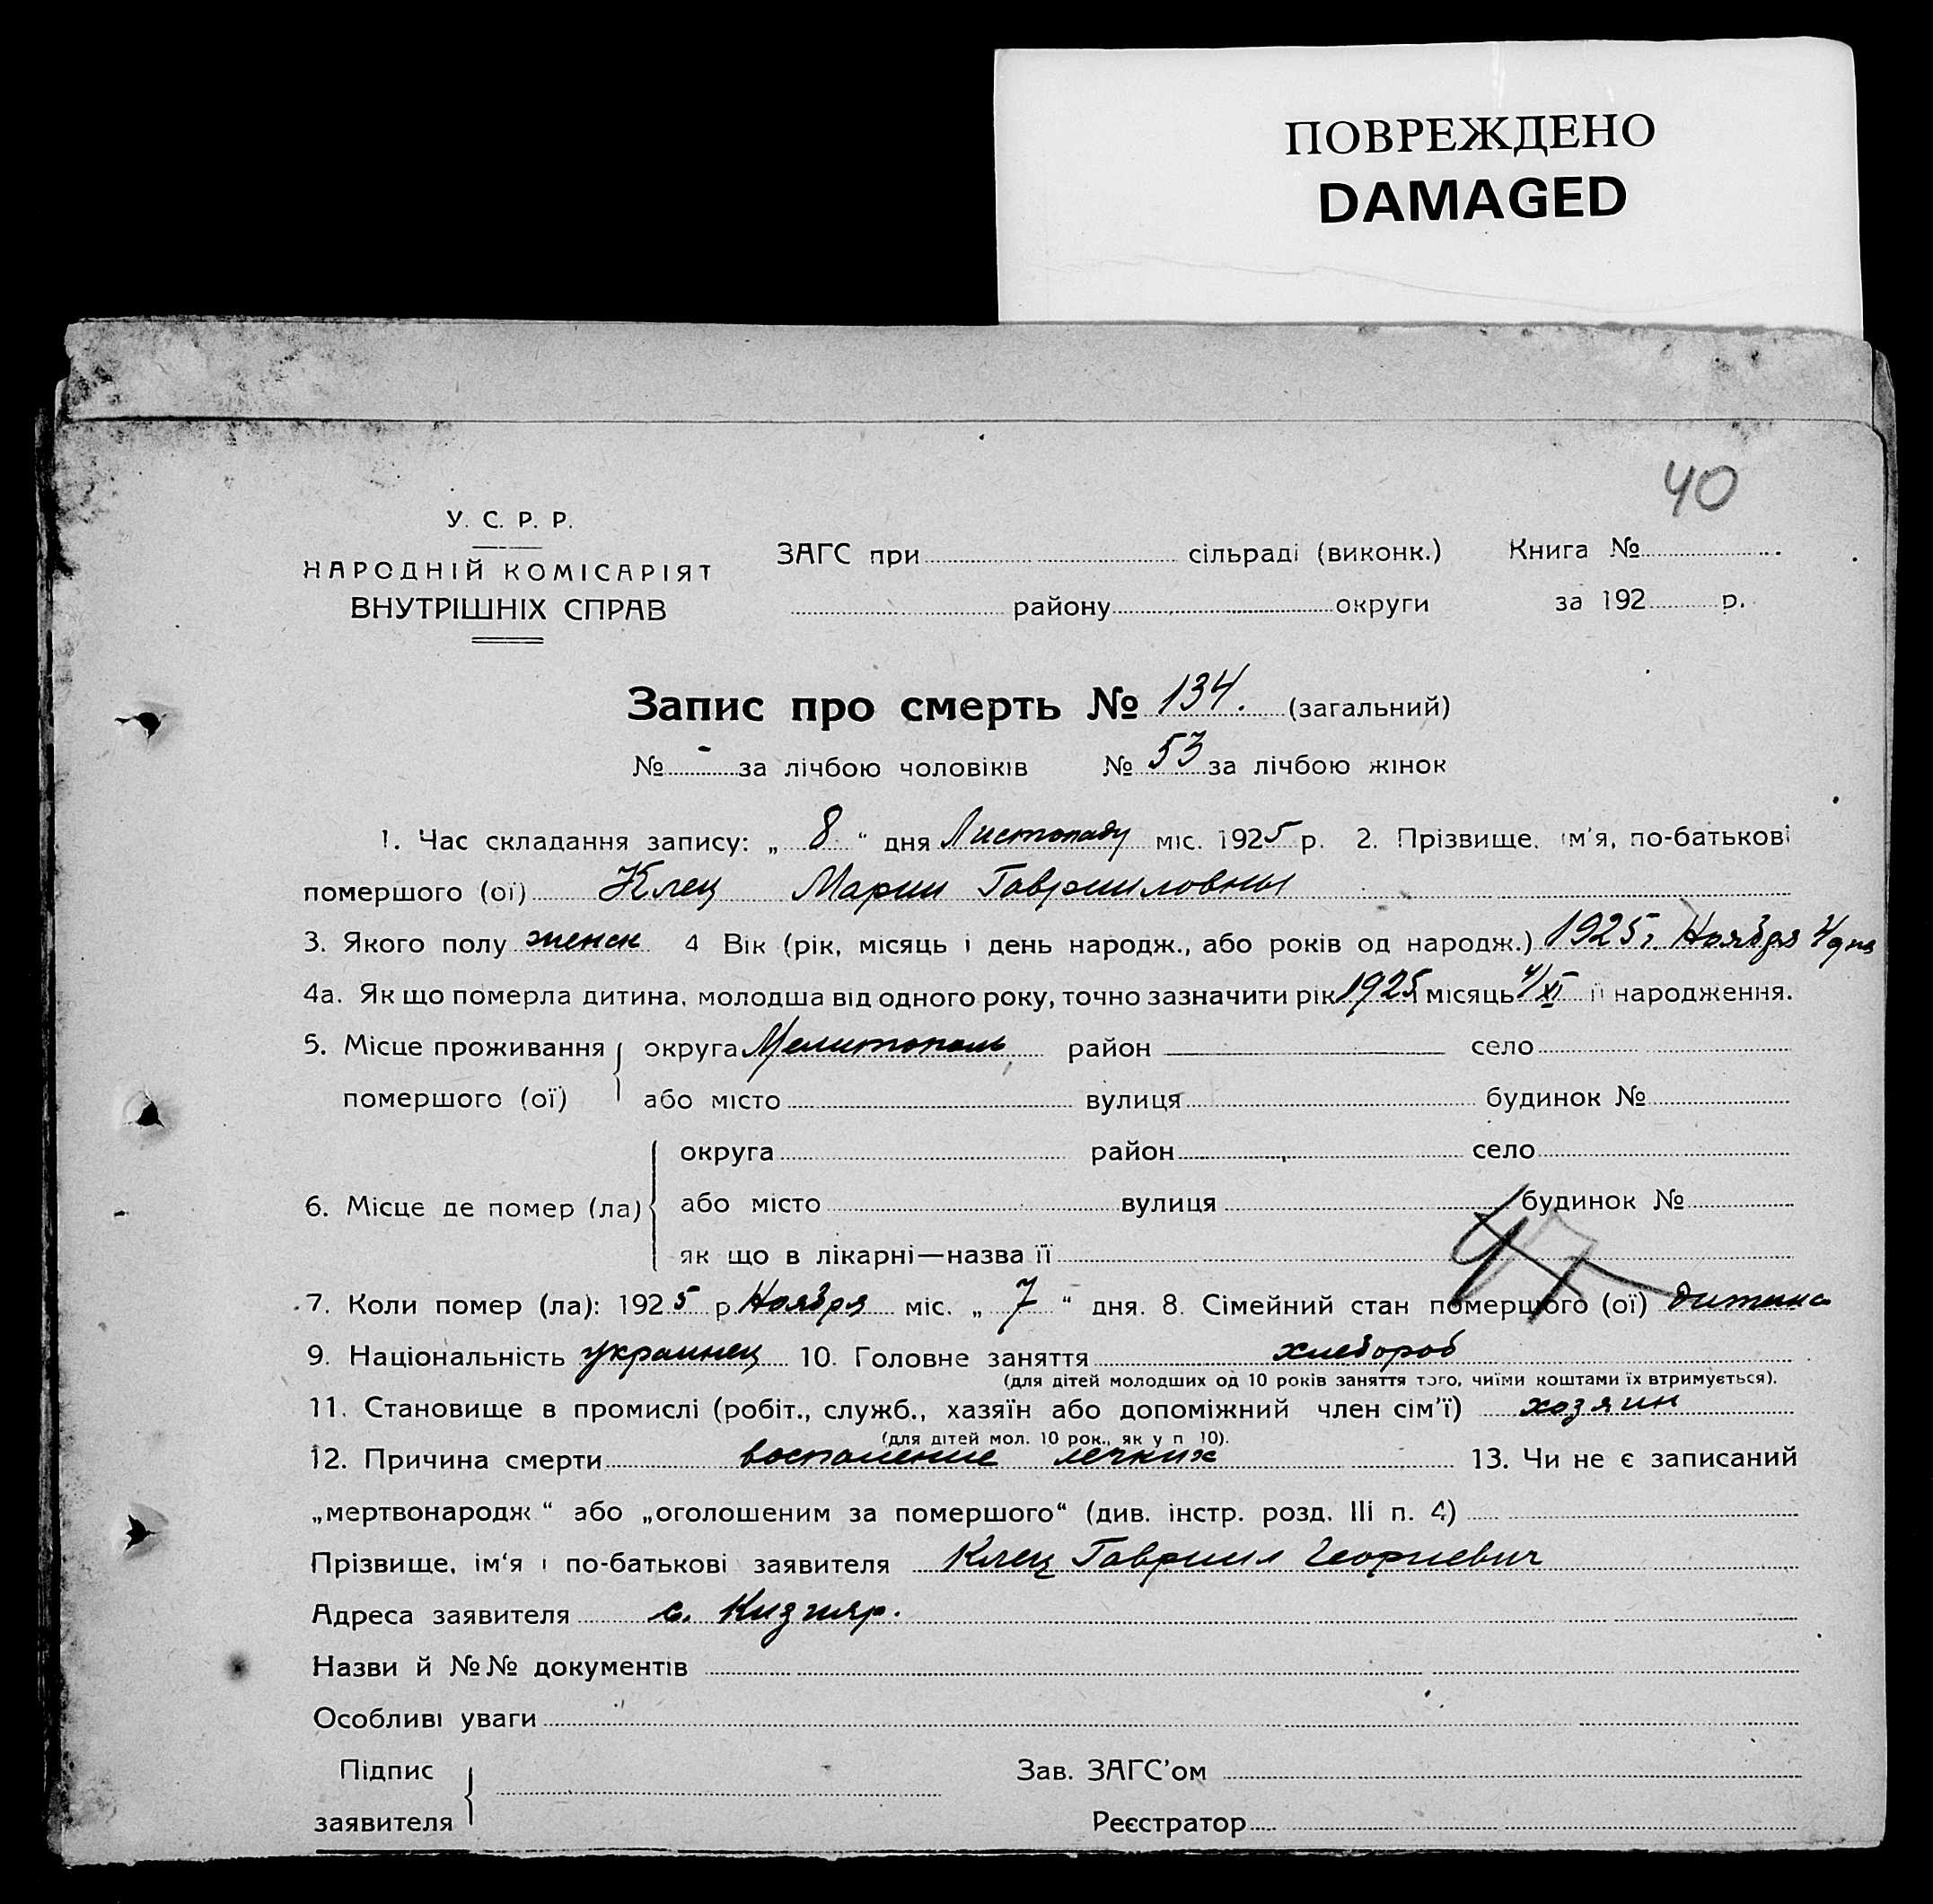 ПОВРЕЖДЕНО
DAMAGED
40
У. С. Р. Р.
НАРОДНІЙ КОМІСАРІЯТ
ВНУТРІШНІХ СПРАВ
ЗАГС при сільраді (виконк.) Книга №
району округи за 192 р.
Запис про смерть № 134. (загальний)
№ - за лічбою чоловіків № 53 за лічбою жінок
1. Час складання запису: „ 8 “ дня Листопаду міс. 1925 р. 2. Прізвище, ім'я, по-батькові
помершого (ої) Клец Марии Гавриловны
3. Якого полу женск 4 Вік (рік, місяць і день народж., або років од народж.) 1925 г. Ноября 4 дня
4а. Як що померла дитина, молодша від одного року, точно зазначити рік 1925 місяць 4/XI її народження.
5. Місце проживання округа Мелитополь район село
помершого (ої) або місто вулиця будинок №
округа район село
6. Місце де помер (ла) або місто вулиця будинок №
як що в лікарні—назва її
7. Коли помер (ла): 1925 р. Ноября міс. „ 7 “ дня. 8. Сімейний стан помершого (ої) дитина
9. Національність украинец 10. Головне заняття хлебороб
(для дітей молодших од 10 років заняття того, чиїми коштами їх втримується).
11. Становище в промислі (робіт., служб., хазяїн або допоміжний член сім'ї) хозяин
(для дітей мол. 10 рок., як у п 10).
12. Причина смерти воспаление легких 13. Чи не є записаний
„мертвонародж “ або „оголошеним за помершого“ (див. інстр. розд. III п. 4)
Прізвище, ім'я і по-батькові заявителя Клец Гавриил Георгиевич
Адреса заявителя с. Кизияр.
Назви й №№ документів
Особливі уваги
Підпис Зав. ЗАГС'ом
заявителя Реєстратор